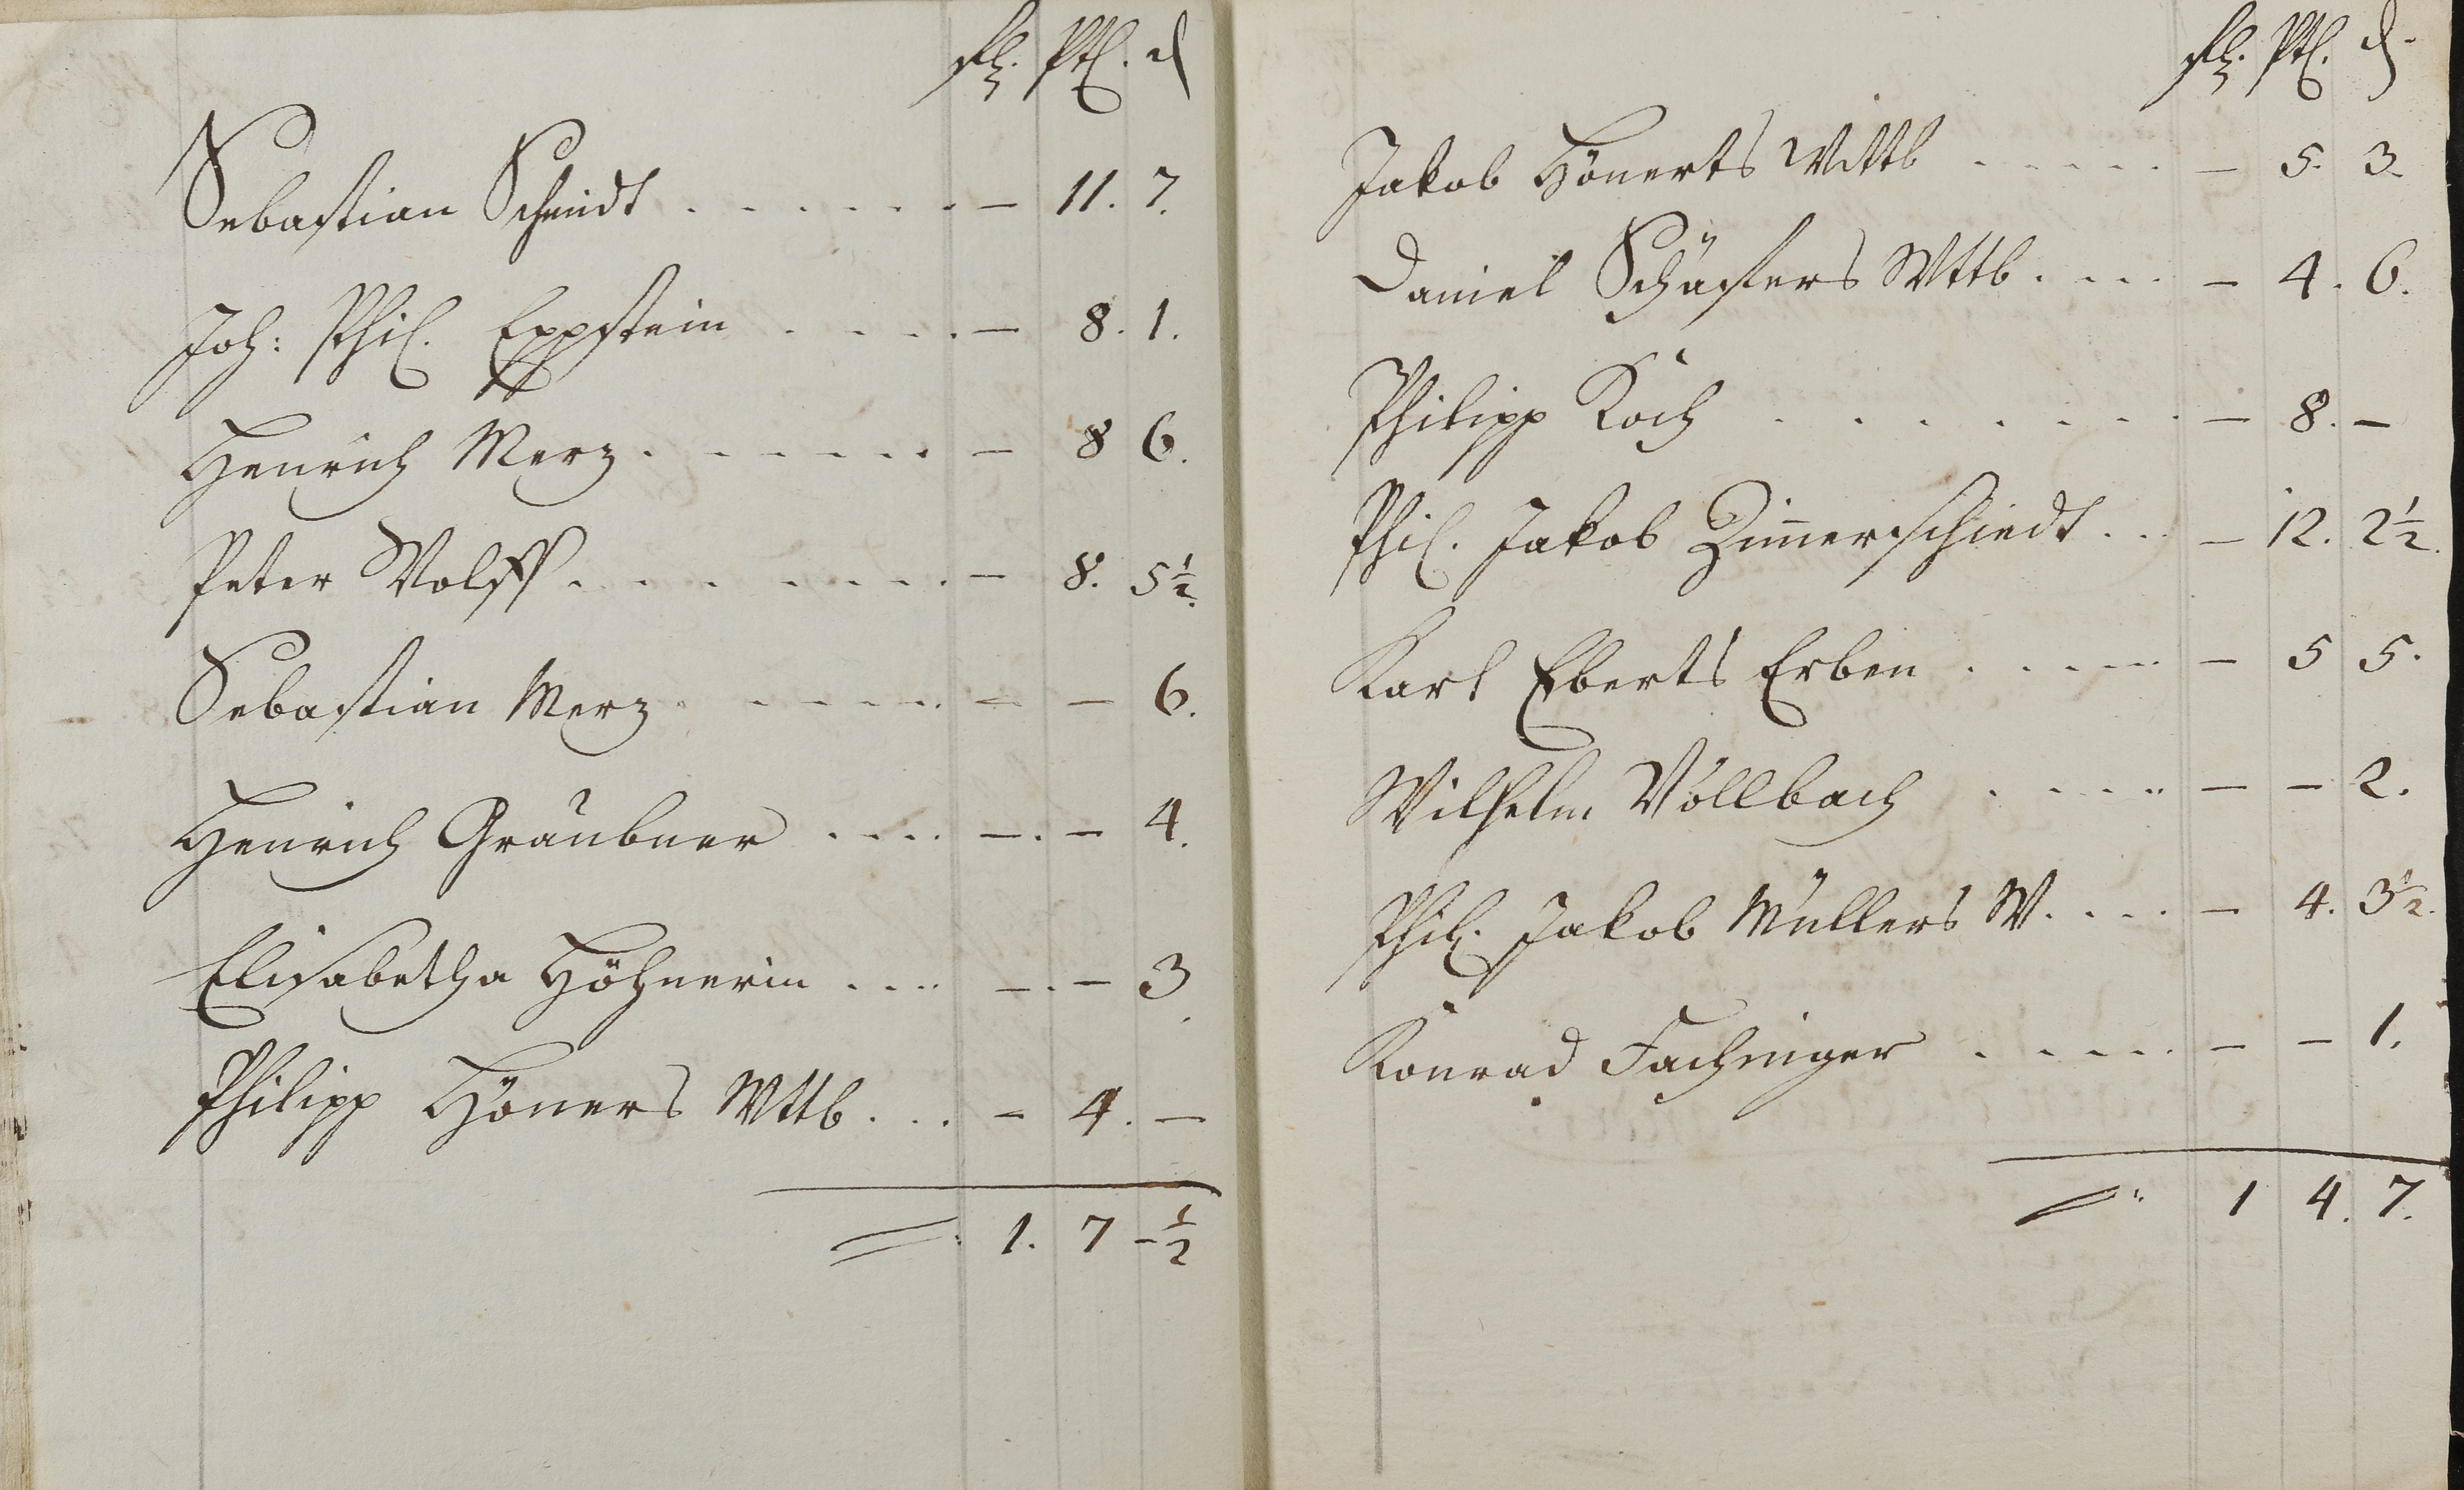 fl. Ptl. d
Sebastian Schmidt . . . . . . . — 11. 7.
Joh: Phil. Eppstein . . . . . — 8. 1.
Henrich Merz . . . . . . . — 8 6.
Peter Wolff . . . . . . . . — 8. 5½.
Sebastian Merz . . . . . . . — — 6.
Henrich Gräubner . . . . — . — 4.
Elisabetha Höhnerin . . . . — . — 3.
Philipp Höners Wttb . . . — 4. —
= : 1. 7 — ½
fl. Ptl. d.
Jakob Hönerts Wittb . . . . . . — 5. 3.
Daniel Schäfers Wttb . . . . — 4. 6.
Philipp Koch . . . . . . . . — 8. —
Phil. Jakob Zim̅erschiedt . . . — 12. 2½.
Karl Eberts Erben . . . . . — 5 5.
Wilhelm Vollbach . . . . . — — 2.
Phil. Jakob Müllers W. . . . . — 4. 3½.
Konrad Fachinger . . . . . . — — 1.
= : 1 4. 7.